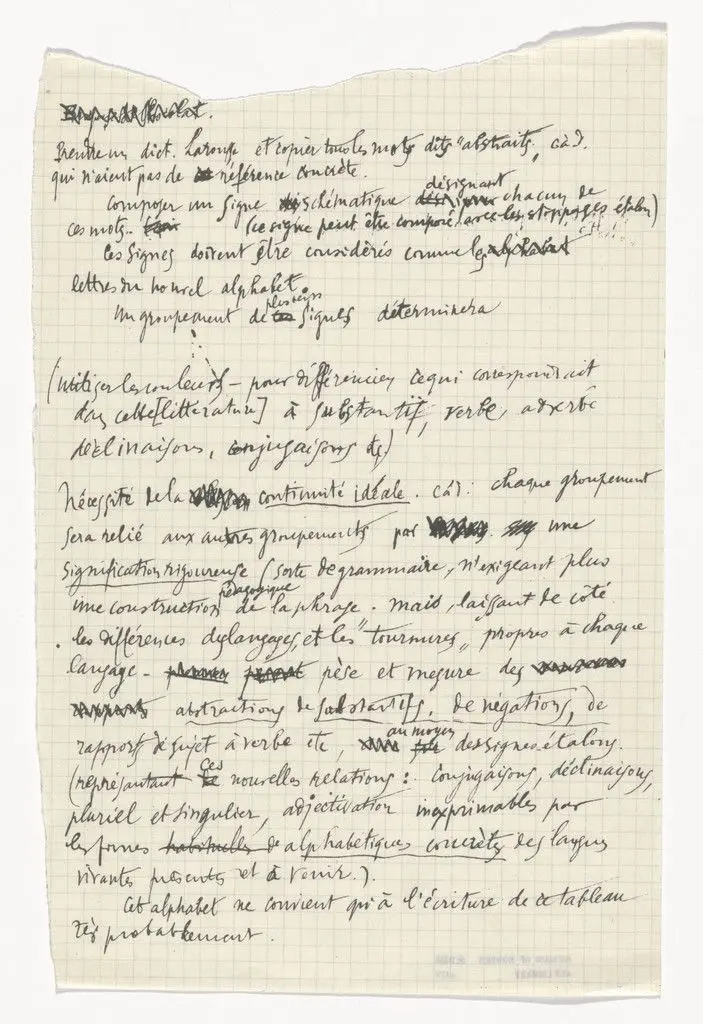 Prendre un dict. Larousse et copier tous les mots dits "abstraits", càd.
qui n'aient pas de référence concrète.
Composer un signe schématique désignant chacun de
ces mots. (ce signe peut être composé avec les stoppages étalon)
Ces signes doivent être considérés comme les
lettres du nouvel alphabet.
Un groupement de plusieurs signes déterminera
(utiliser les couleurs – pour différencier ce qui correspondrait
dans cette [littérature] à substantif, verbe, adverbe
déclinaisons, conjugaisons etc)
Nécessité de la continuité idéale. càd: chaque groupement
sera relié aux autres groupements par une
signification rigoureuse (sorte de grammaire, n'exigeant plus
une construction pédagogique de la phrase. mais, laissant de côté
les différences des langages, et les "tournures" propres à chaque
langage – pèse et mesure des
abstractions de substantifs, de négations, de
rapports de sujet à verbe etc, au moyen des signes étalons.
(représentant ces nouvelles relations: conjugaisons, déclinaisons,
pluriel et singulier, adjectivation inexprimables par
les formes habituelles de alphabetiques concrètes des langues
vivantes présentes et à venir.).
Cet alphabet ne convient qu'à l'écriture de ce tableau
très probablement.